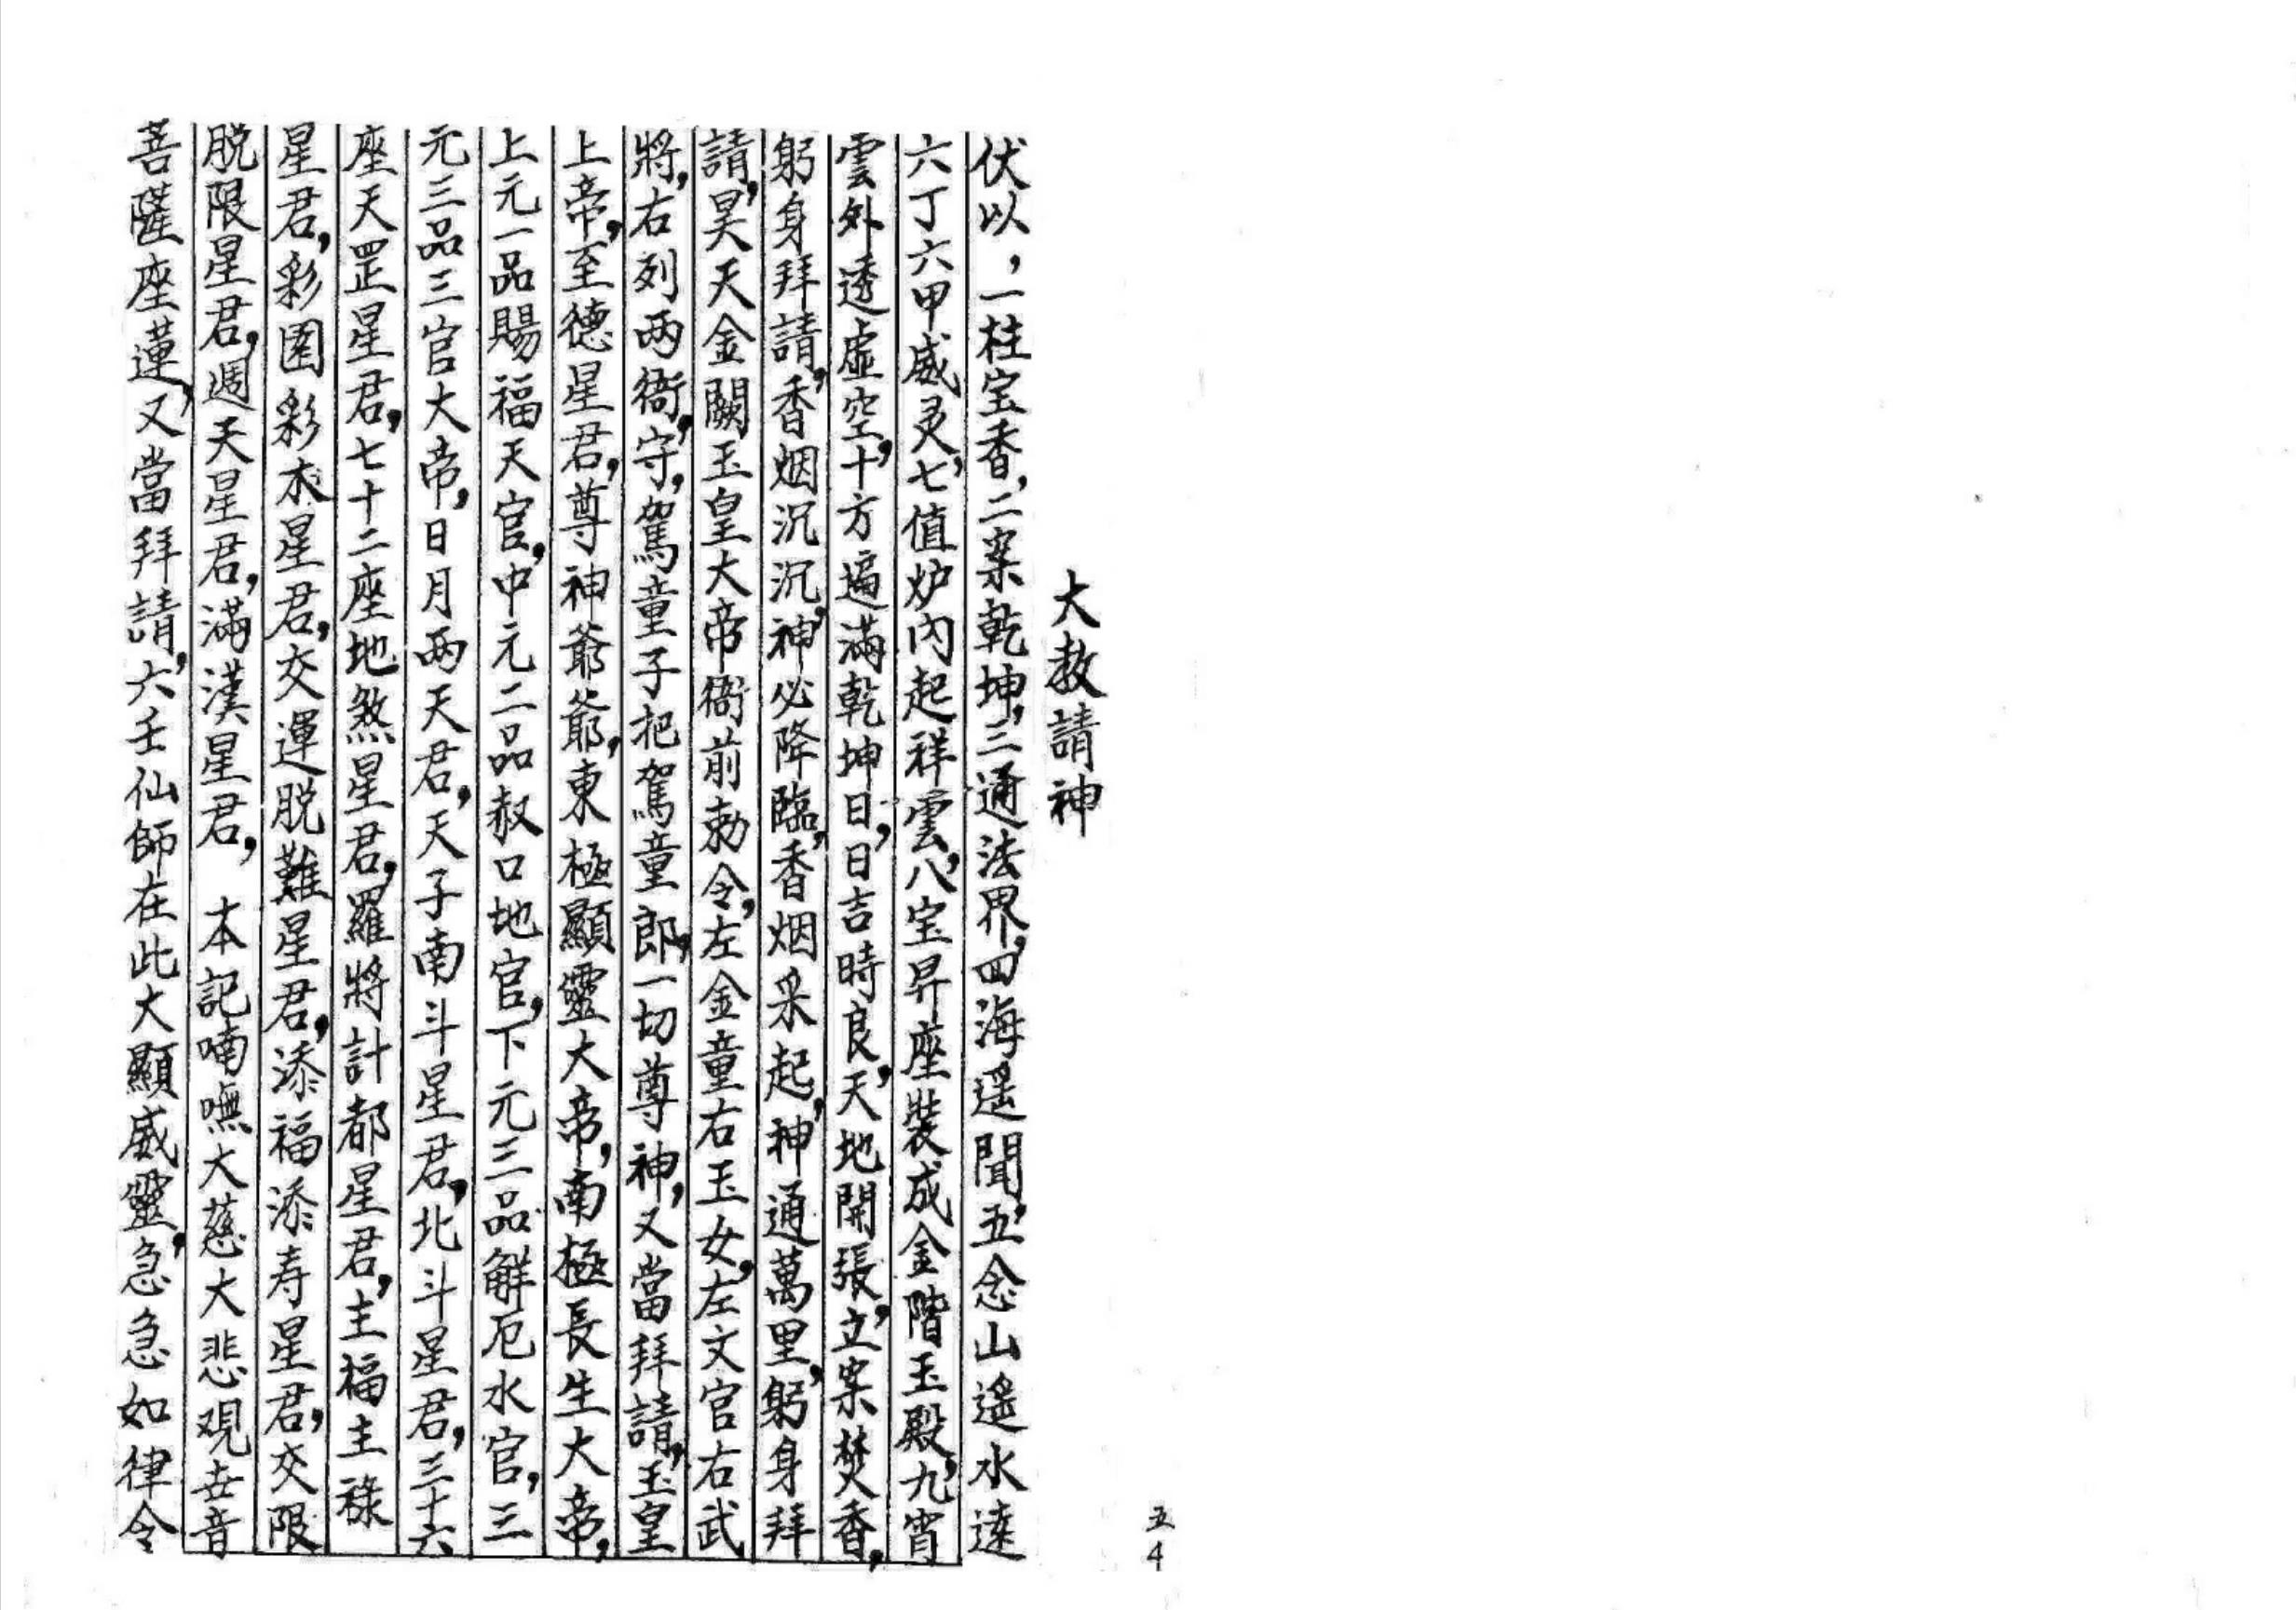 大教請神
伏以，一柱宝香，二案乾坤，三通法界，四海遥聞，五念山遙水達
六丁六甲威灵，七值炉內起祥雲，八宝昇座裝成金階玉殿，九宵
雲外透虛空，十方遍滿乾坤日，日吉時良，天地開張，立案焚香，
躬身拜請，香烟沉沉，神必降臨，香烟采起，神通萬里，躬身拜
請，昊天金闕玉皇大帝衙前勅令，左金童右玉女，左文官右武
將，右列两衙，守，駕童子把駕童郎，一切尊神，又當拜請，玉皇
上帝，至德星君，尊神爺爺，東極顯靈大帝，南極長生大帝，
上元一品賜福天官，中元二品赦口地官，下元三品解厄水官，三
元三品三官大帝，日月两天君，天子南斗星君，北斗星君，三十六
座天罡星君，七十二座地煞星君，羅將計都星君，主福主祿
星君，彩圉彩木星君，交運脱難星君，添福添寿星君，交限
脱限星君，週天星君，滿漢星君，本記喃嘸大慈大悲观世音
菩薩座蓮，又當拜請，六壬仙師在此大顯威靈，急急如律令
五4